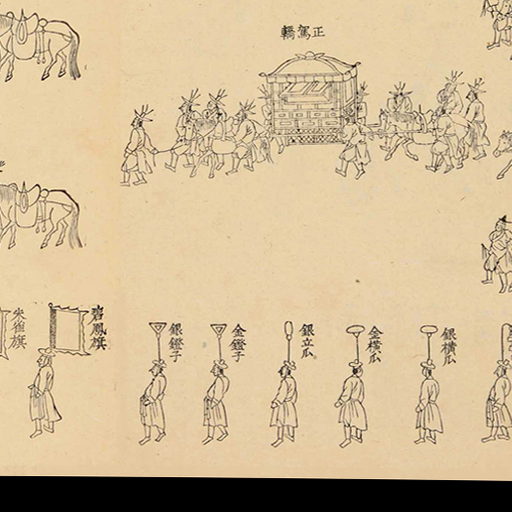 正駕轎
銀橫瓜
金橫瓜
銀立瓜
金鐙子
銀鐙子
碧鳳旗
朱雀旗